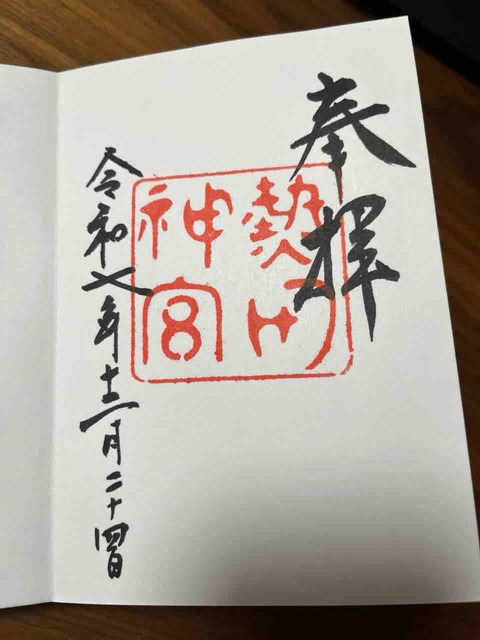 奉拝
熱田
神宮
令和七年十二月二十四日